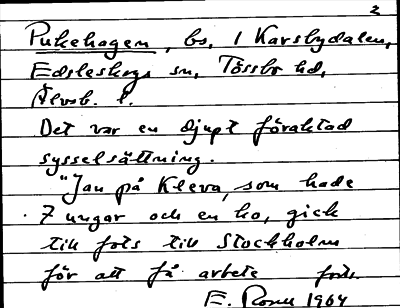 2
Pukehagen, bs. i Karsbydalen,
Edsleskogs sn, Tössbo hd,
Älvsb. l.
Det var en djupt föraktad
sysselsättning.
"Jan på Kleva, som hade
7 ungar och en ko, gick
till fots till Stockholm
för att få arbete forts.
E. 1964